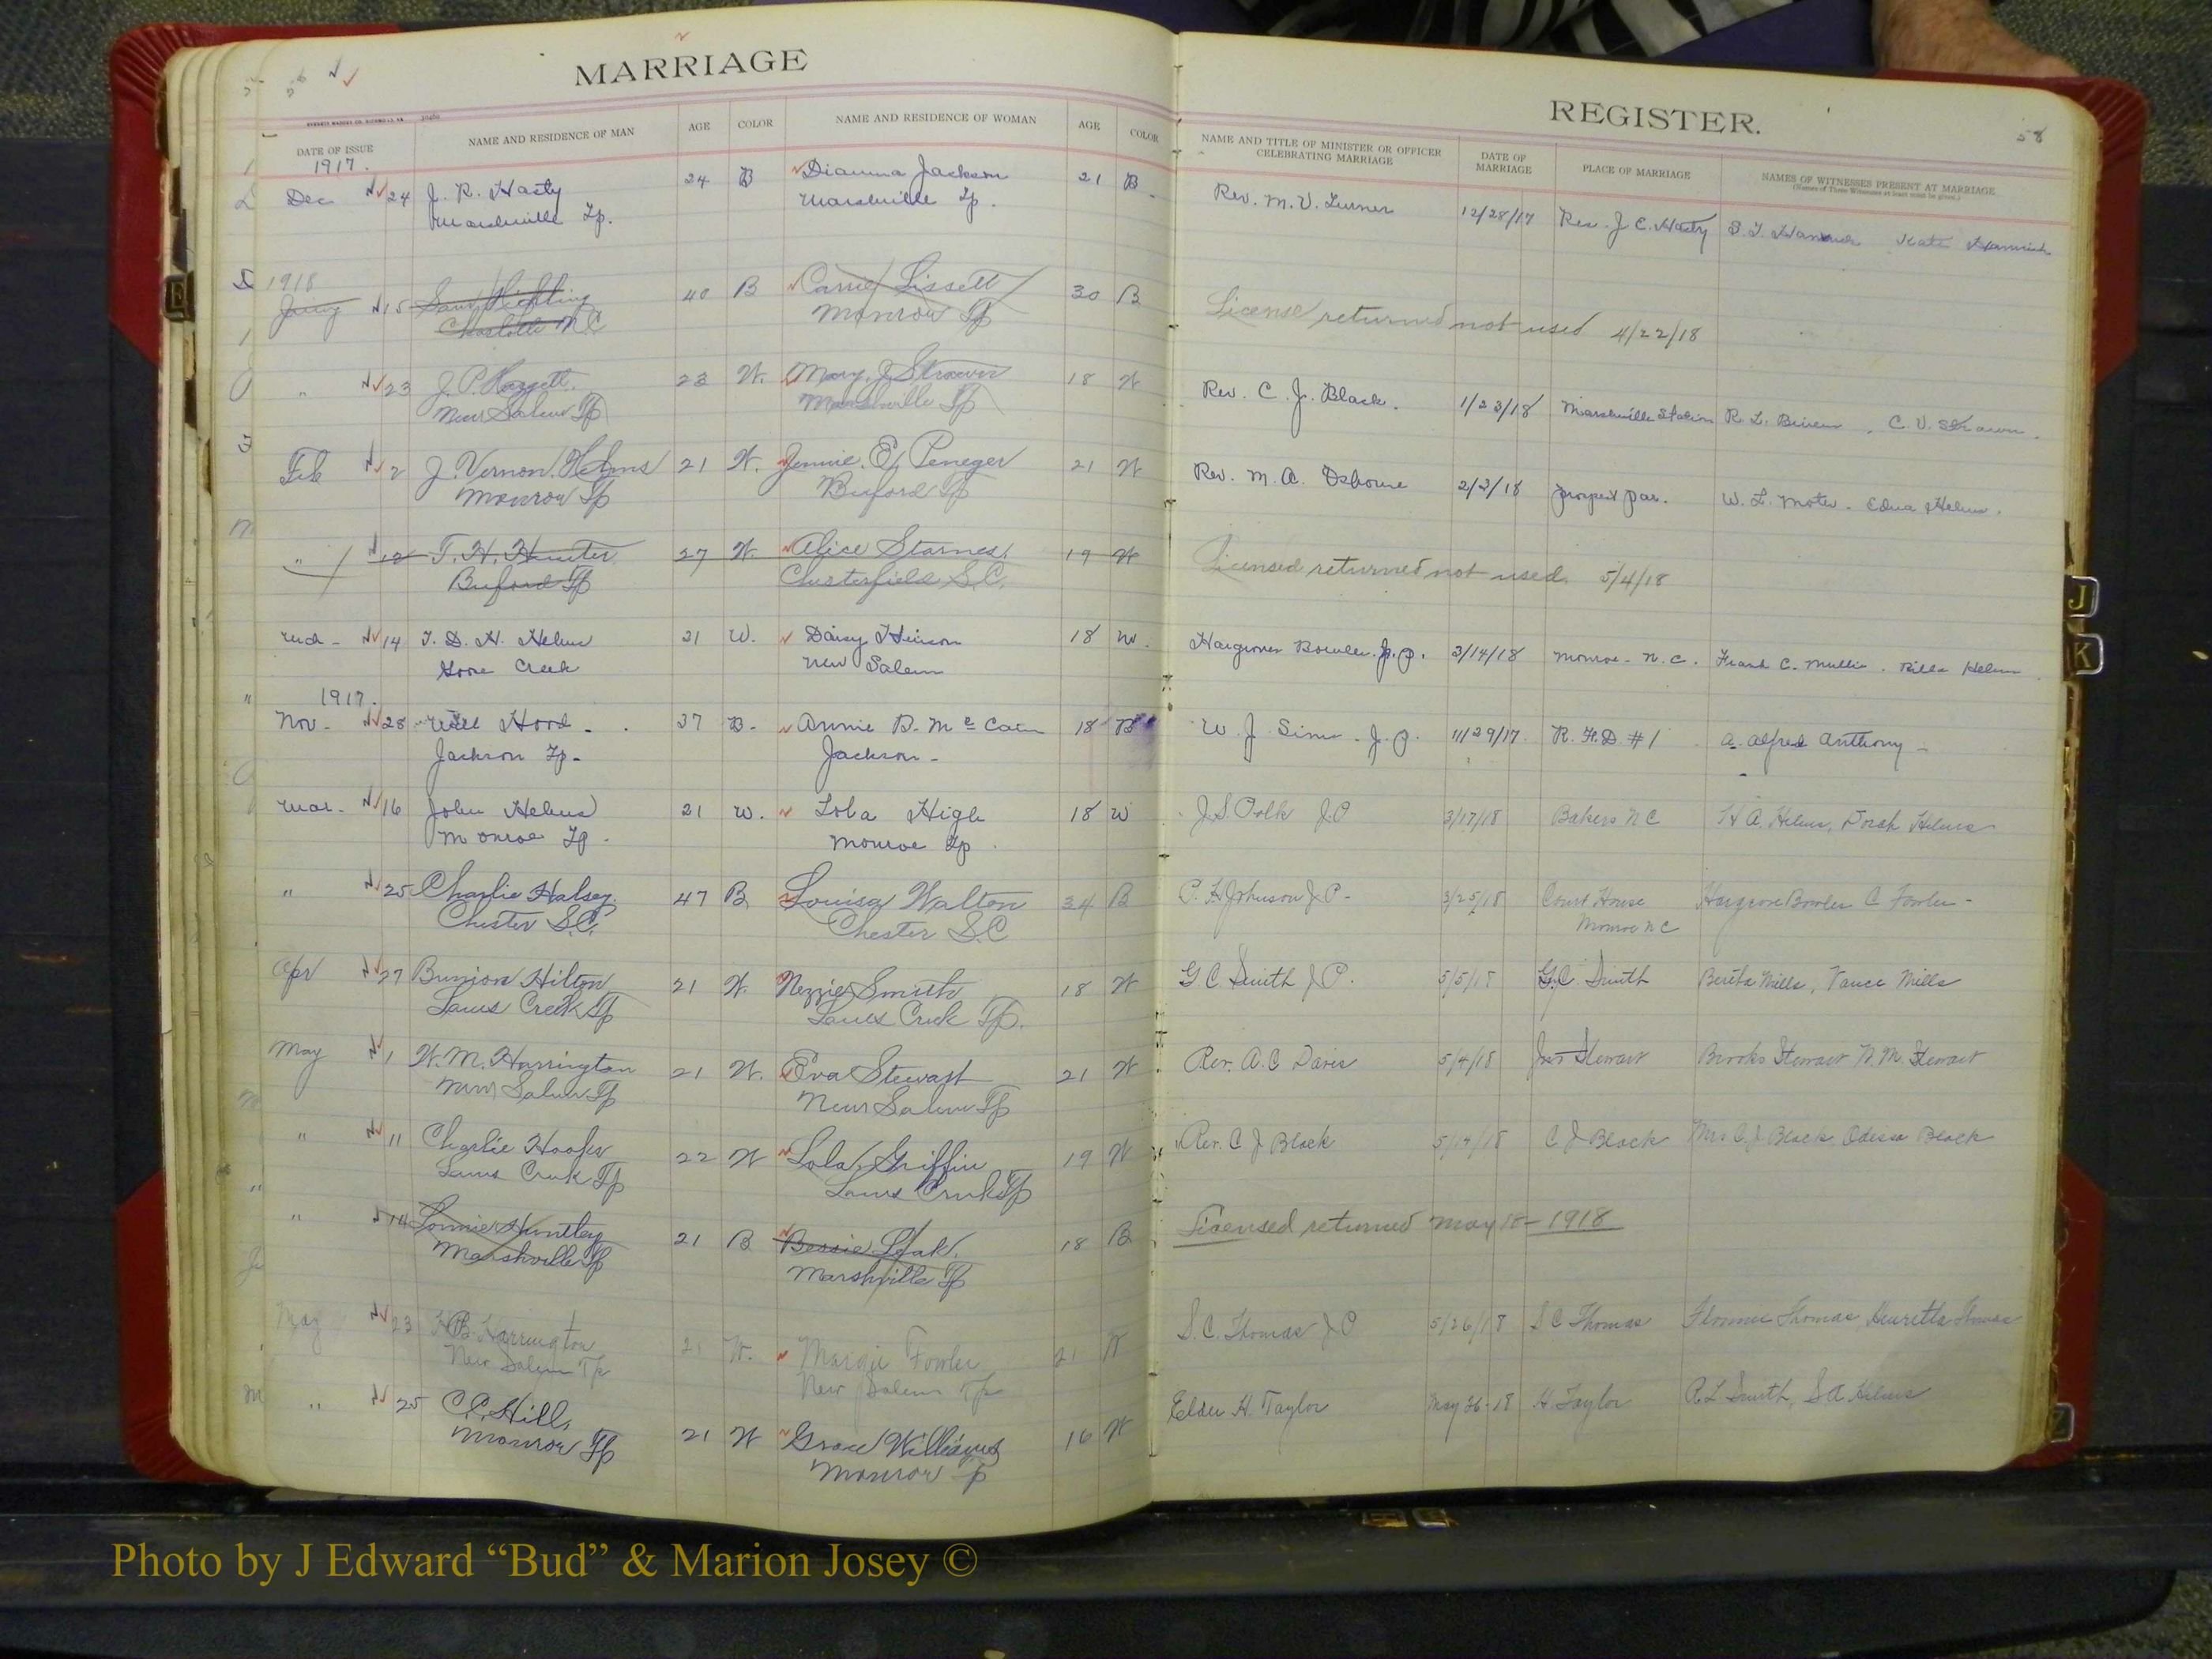 MARRIAGE
DATE OF ISSUE NAME AND RESIDENCE OF MAN AGE COLOR NAME AND RESIDENCE OF WOMAN AGE COLOR
1917.
Dec 24 J. R. Hasty 24 B Dianna Jackson 21 B
Marshville Tp. Marshville Tp.
1918
Jany 15 Sam 40 B Carrie Lissett 30 B
Charlotte N.C Monroe Tp
" 23 J. P. 23 W. Mary J. Strawn 18 W
New Salem Tp Marshville Tp
Feb 2 J. Vernon Helms 21 W. Jennie E. Peneger 21 W
Monroe Tp Buford Tp
" 12 T. H. Hunter 27 W. Alice Starnes 19 W
Buford Tp Chesterfield S.C.
Mch - 14 T. D. H. Helms 21 W. Daisy Hinson 18 W.
Goose Creek New Salem
1917.
Nov. 28 Will Hood 37 B. Annie B. McCain 18 B
Jackson Tp. Jackson -
Mar. 16 John Helms 21 W. Lola High 18 W
Monroe Tp. Monroe Tp.
" 25 Charlie Halsey 47 B Louisa Walton 34 B
Chester S.C. Chester S.C
Apr 27 Bunion Hilton 21 W. Nezzie Smith 18 W
Lanes Creek Tp Lanes Creek Tp.
May 1 W. M. Harrington 21 W. Eva Stewart 21 W
New Salem Tp New Salem Tp
" 11 Charlie Hooks 22 W Lola Griffin 19 W
Lanes Creek Tp Lanes Creek Tp
" 14 Lonnie Huntley 21 B Bessie Leak 18 B
Marshville Tp Marshville Tp
May 23 Harrington 21 W. Margie Fowler 21 W
New Salem Tp New Salem Tp
" 25 C. C. Hill, 21 W Grace Williams 16 W
Monroe Tp Monroe Tp
REGISTER.
58
NAME AND TITLE OF MINISTER OR OFFICER CELEBRATING MARRIAGE DATE OF MARRIAGE PLACE OF MARRIAGE NAMES OF WITNESSES PRESENT AT MARRIAGE
(Names of Three Witnesses at least must be given.)
Rev. M. V. Turner 12/28/17 Res. J C. Hasty
License returned not used 4/22/18
Rev. C. J. Black. 1/23/18 Marshville Station R. L. Bivens, C. V. Strawn.
Rev. M. A. Osborne 2/2/18 Prospect par. W. L. Edna Helms.
Licensed returned not used. 5/4/18
Hargrove Bowles J. P. 3/14/18 Monroe - N. C. Frank C. Mullis. Helms
W. J. Sims. J. P. 11/29/17 R. F. D. #1 A. Alfred Anthony -
J. S. Polk J. P 3/17/18 Bakers N C H A. Helms, Dorah Helms
P. H Johnson J. P - 3/25/18 Court House Hargrove Bowles C Fowler -
Monroe N C
G C Smith J P. 5/5/18 G. C Smith Mills, Vance Mills
Rev. A. C Davis 5/4/18 Jas Stewart Brooks Stewart Stewart
Rev. C J Black C J Black Mrs C. J Black, Odessa Black
Licensed returned May 18 - 1918
S. C. Thomas J P 5/26/18 S C Thomas Thomas, Henretta Thomas
Elder H. Taylor May 26 - 18 H. Taylor R. L Smith, S A Helms
E
J
K
Photo by J Edward “Bud” & Marion Josey ©